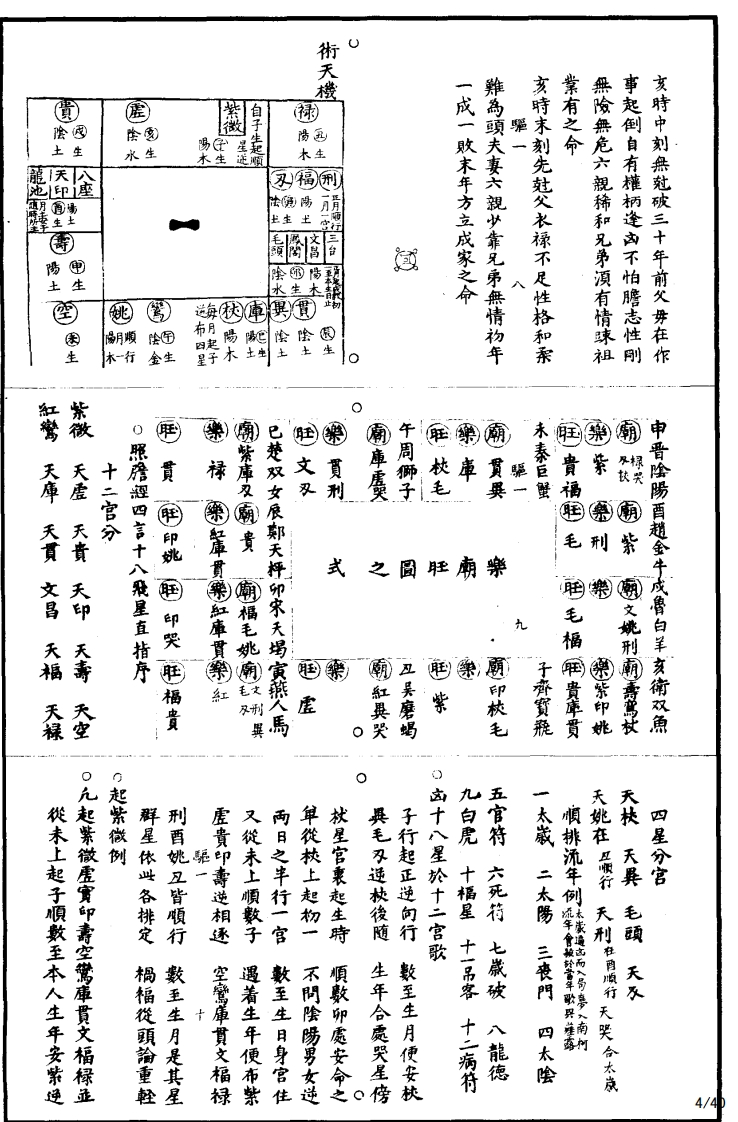 亥時中刻無尅破三十年前父母在作
事起倒自有權柄逢凶不怕膽志性剛
無險無危六親稀和兄弟須有情踈祖
業有之命
驅一
八
亥時末刻先尅父衣祿不足性格和柔
難為頭夫妻六親少靠兄弟無情初年
一成一敗末年方立成家之命
術天機
祿
陽丑
木生
紫微
自子生起順
星逆
陽子
木生
虛
陰亥
水生
貴
陰戌
土生
刃 福 刑
陰寅 陽
土生 土
正月順行
一月一宮
八座
天印
龍池
陽土
酉生
三台
文昌
鳳閣
毛頭
陽木
卯生
陰水
壽
陽申
土生
異 貫
陰 陰辰
土 土生
庫
陽巳
木生
杖
陽木
每月起子
逆布四星
鸞
陰午
金生
姚
順行
陽木
空
未生
申晉陰陽酉趙金牛戌魯白羊亥衛双魚
廟 祿哭刃杖 廟 紫 廟 文姚刑 廟 壽鸞杖
樂 紫 樂 刑 樂 樂 紫印姚
旺 貴福 旺 毛 旺 毛福 旺 貴庫貫
未秦巨蟹
子齊寶瓶
驅一
九
廟 貫異
廟 印杖毛
樂 庫
樂
旺 杖毛
旺 紫
午周獅子
丑吳磨蝎
廟 庫虛哭
廟 紅異哭
樂 貫刑
樂
旺 文刃
旺 虛
樂廟旺圖之式
巳楚双女辰鄭天秤卯宋天蝎寅燕人馬
廟 紫庫刃 廟 貴 廟 福毛姚 廟 文刑異毛刃
樂 祿 樂 紅庫貫 樂 紅庫貫 樂 紅
旺 貫 旺 印姚 旺 印哭 旺 福貴
○照膽經四言十八飛星直指序
十二宮分
紫微 天虛 天貴 天印 天壽 天空
紅鸞 天庫 天貫 文昌 天福 天祿
四星分宮
天杖 天異 毛頭 天刃
天姚在丑順行 天刑在酉順行 天哭合太歲
順排流年例
一太歲 二太陽 三喪門 四太陰
五官符 六死符 七歲破 八龍德
九白虎 十福星 十一吊客 十二病符
○凶十八星於十二宮歌
子行起正逆向行 數至生月便安杖
異毛刃逆杖後隨 生年合處哭星傍
杖星宮裏起生時 順數卯處安命之
單從杖上起初一 不問陰陽男女逆
兩日之半行一宮 數至生日身宮住
又從未上順數子 遇着生年便布紫
虛貴印壽逆相逐 空鸞庫貫文福祿
驅一
十
刑酉姚丑皆順行 數至生月是其星
群星依此各排定 禍福從頭論重輕
○起紫微例
○凡起紫微虛貴印壽空鸞庫貫文福祿並
從未上起子順數至本人生年安紫逆
4/40